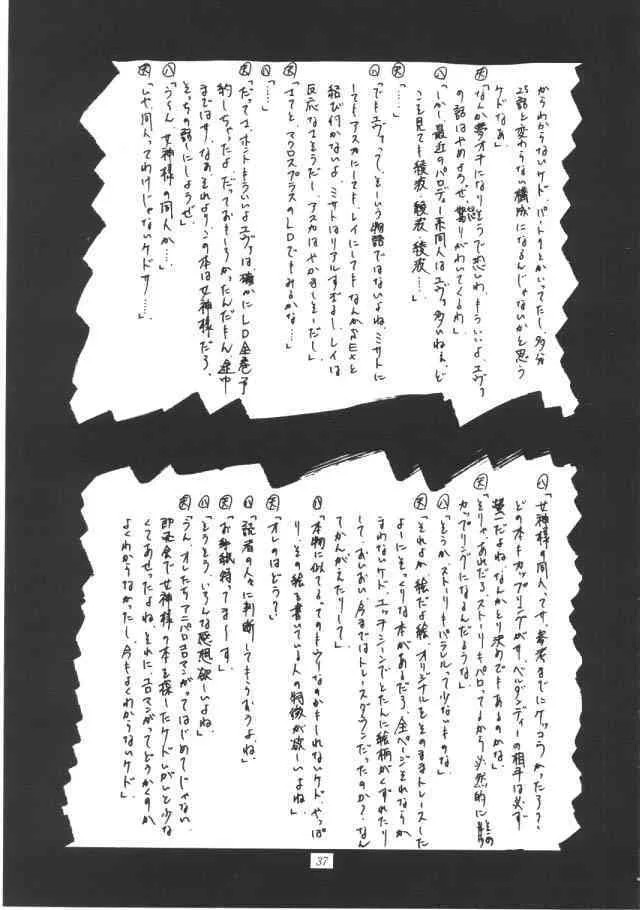 からわからないケド、パート2とかいってたし、多分
25話と変わらない構成になるんじゃないかと思う
ケドなぁ」
「なんか夢オチになりそうで恐いわ、もういいよ、エヴァ
の話はやめようぜ、怒りがわいてくるわ」
八「しかし最近のパロディー系同人はエヴァ多いねぇ、ど
こを見ても綾波、綾波、綾波……」
「……」
八「でもエヴァって、そーいう物語ではないよね、ミサトに
してもアスカにしても、レイにしてもなんかSEXと
結び付かないよ、ミサトはリアルすぎるし、レイは
反応なさそうだし、アスカはやかましそーだし」
「さてと、マクロスプラスのLDでもみるかな…」
八「……」
「だってさ、ホントもういいよエヴァは、確かにLD全巻予
約しちゃったよ、だっておもしろかったんだもん、途中
まではサ、なぁ、それより、この本は女神様だろ、
そっちの話にしようぜ」
八「う〜ん、女神様の同人か…」
「いや、同人ってわけじゃないケドサ……」
八「女神様の同人ってサ、参考までにケッコウかったろ?
どの本もカップリングがサ、ベルダンディーの相手は必ず
螢一だよね、なんかとり決めでもあるのかな」
「そりゃあれだろ、ストーリーもパロってるから必然的に
カップリングになるんだろうな」
八「そうか、ストーリーもパラレルって少ないものな」
「それよか絵だよ絵、オリジナルをそのままトレースした
よーにそっくりな本があるだろ、全ページそれならか
まわないケド、エッチシーンでとたんに絵柄がくずれたり
して、おいおい、今まではトレースダウンだったのか?なん
てかんがえたりして」
八「本物に似てるってのもウリなのかもしれないケド、やっぱ
り、その絵を書いている人の特徴が欲しいよね」
「オレのはどう?」
八「読者の人々に判断してもらおうよね」
「お手紙待ってま〜す。」
八「そうそう、いろんな感想欲しいよね」
「うん、オレたちアニパロエロマンガってはじめてじゃない、
即売会で女神様の本を探したケド、いがいと少な
くてあせったよね、それにエロマンガってどうかくのか
よくわからなかったし、今もよくわからないケド」
37